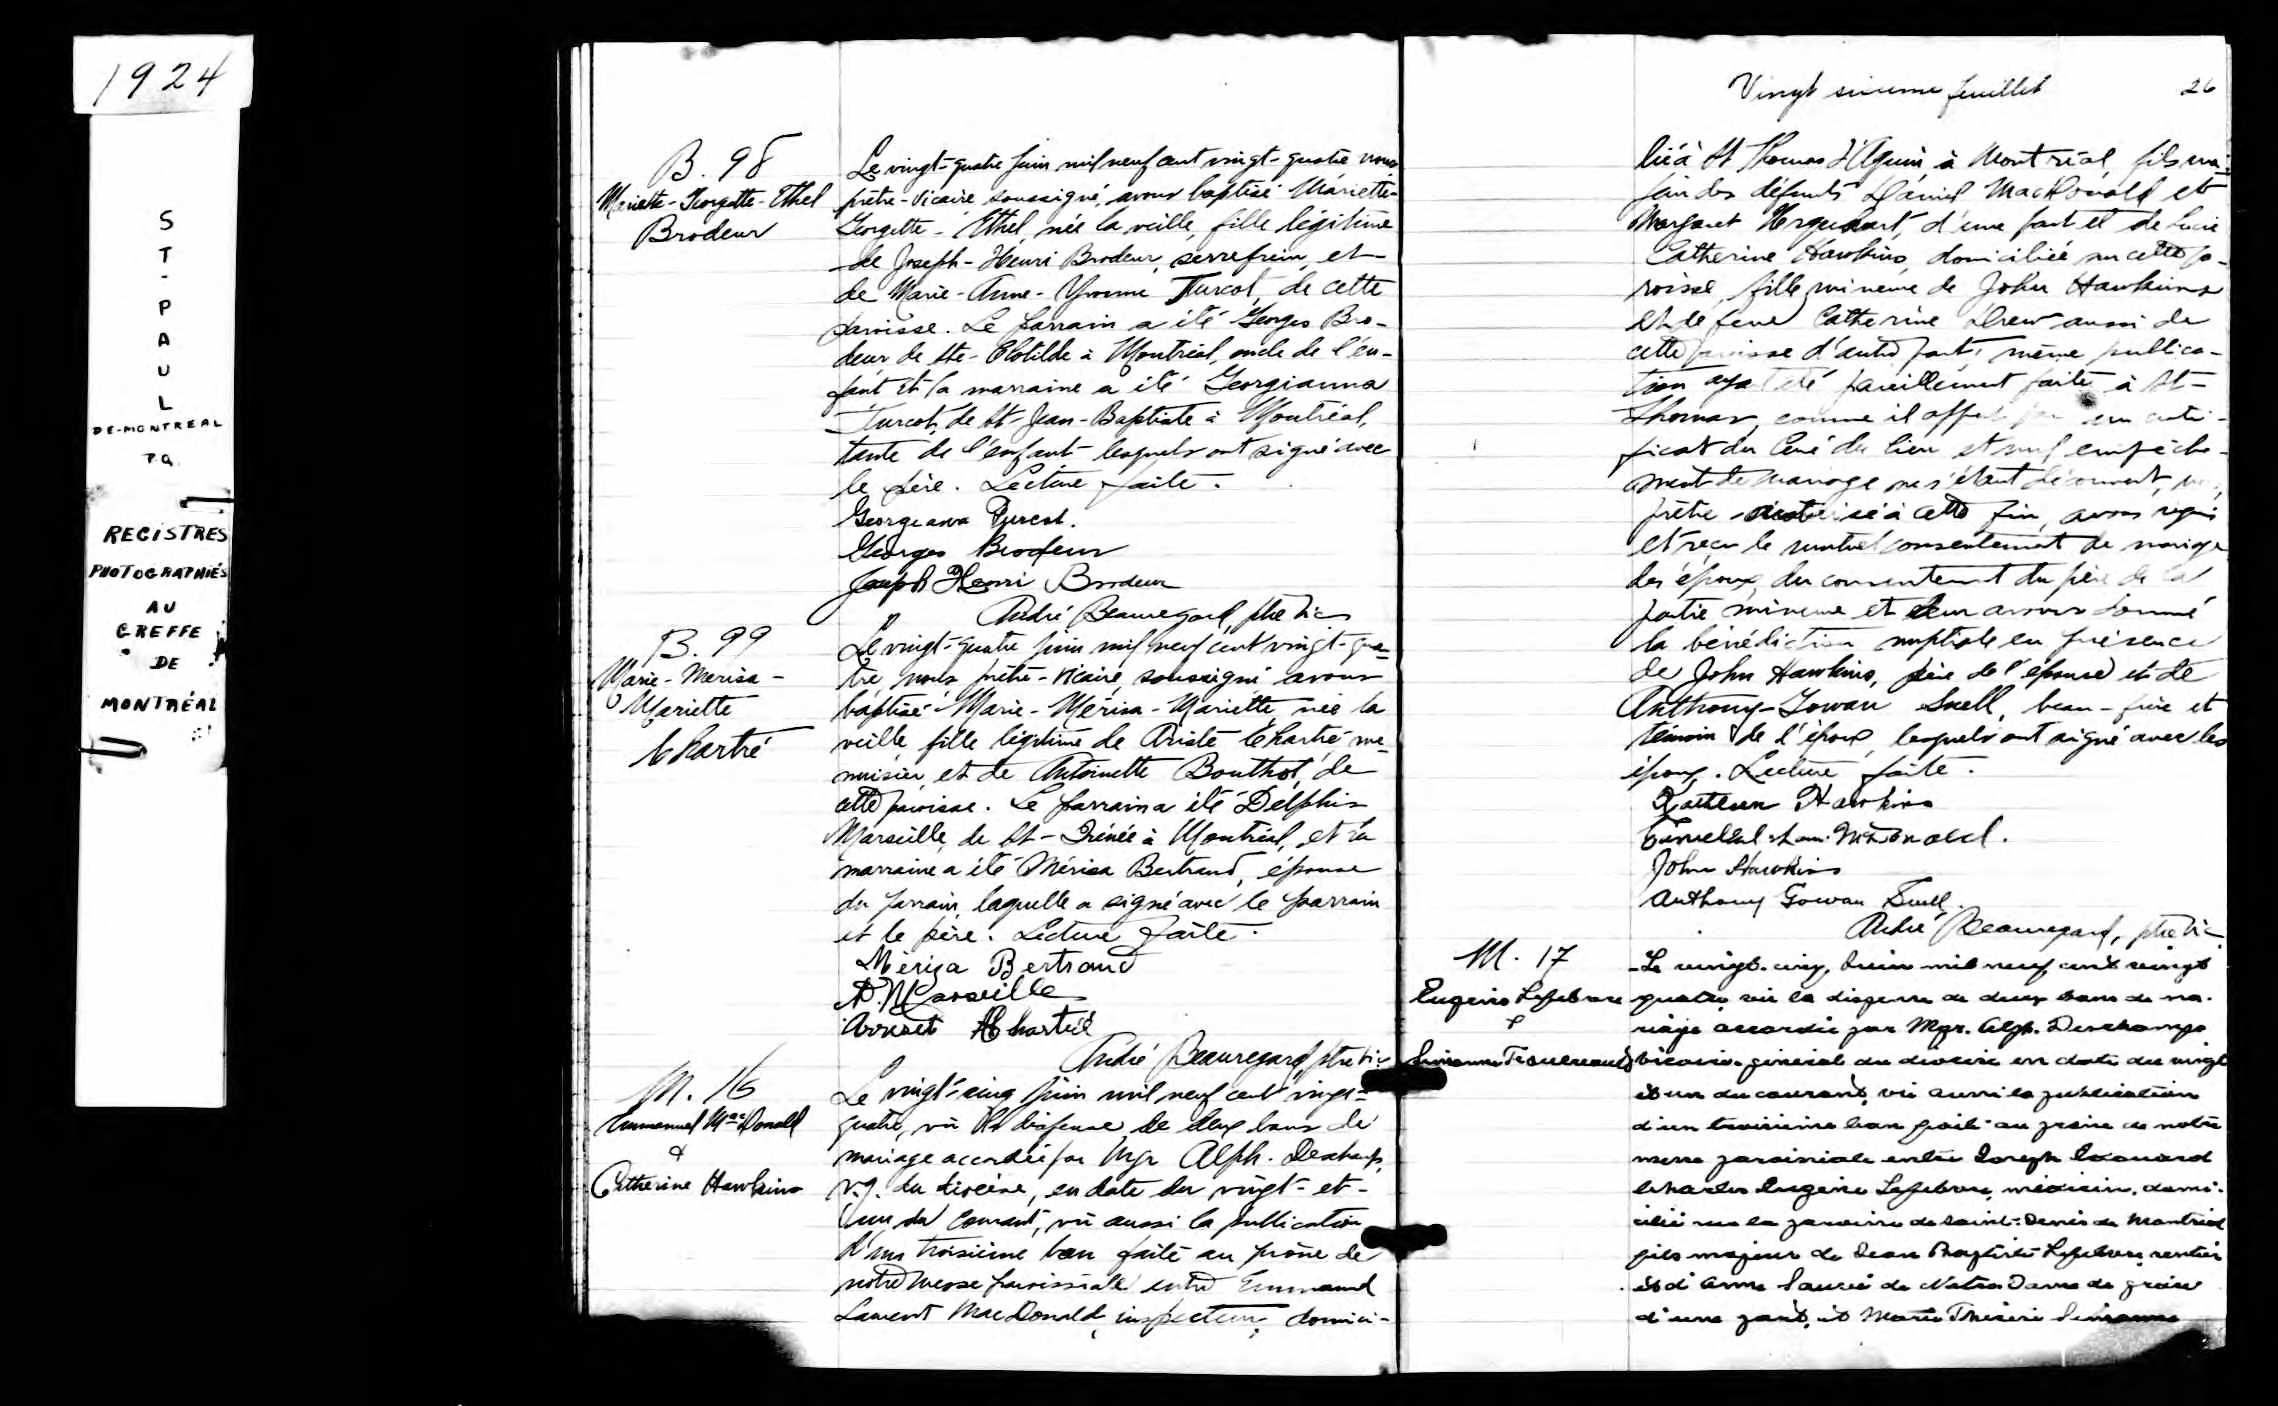 1924
ST-PAUL
DE-MONTREAL
P.Q.
REGISTRES
PHOTOGRAPHIÉS
AU
GREFFE
DE
MONTRÉAL
B. 98
Mariette-Georgette-Ethel
Brodeur
Le vingt-quatre juin mil neuf cent vingt-quatre nous
prêtre-vicaire soussigné, avons baptisé Mariette-
Georgette-Ethel, née la veille, fille légitime
de Joseph-Henri Brodeur, serrefrein, et
de Marie-Anne-Yvonne Turcot, de cette
paroisse. Le parrain a été Georges Bro-
deur de Ste-Clotilde à Montréal, oncle de l'en-
fant et la marraine a été Georgianna
Turcot, de St-Jean-Baptiste à Montréal,
tante de l'enfant lesquels ont signé avec
le père. Lecture faite.
Georgeana Turcot.
Georges Brodeur
Joseph Henri Brodeur
André Beauregard, ptre vic
B. 99
Marie-Merisa-
Mariette
Chartré
Le vingt-quatre juin mil neuf cent vingt-qua-
tre nous prêtre-vicaire soussigné avons
baptisé Marie-Mérisa-Mariette née la
veille fille légitime de Ariste Chartré, me-
nuisier, et de Antoinette Bouthot, de
cette paroisse. Le parrain a été Delphis
Marseille, de St-Irénée à Montréal, et la
marraine a été Mérisa Bertrand, épouse
du parrain, laquelle a signé avec le parrain
et le père. Lecture faite.
Mériza Bertrand
D. Marseille
Chartré
André Beauregard, ptre vic.
M. 16
Emmanuel MacDonald
&
Catherine Hawkins
Le vingt-cinq juin mil neuf cent vingt-
quatre, vu la dispense de deux bans de
mariage accordée par Mgr Alph. Deschamps,
v.g. du diocèse, en date du vingt-et-
un du courant, vu aussi la publication
d'un troisième ban faite au prône de
notre messe paroissiale entre Emmanuel
Laurent MacDonald, inspecteur, domici-
Vingt sixieme feuillet 26
lié à St Thomas d'Aquin à Montréal, fils ma-
jeur des défunts Daniel MacDonald et
Margaret Urquhart, d'une part et de Lucie
Catherine Hawkins, domiciliée sur cette pa-
roisse, fille mineure de John Hawkins
et de feue Catherine Drew aussi de
cette paroisse d'autre part; même publica-
tion ayant été pareillement faite à St-
Thomas, comme il appert par un certi-
ficat du Curé du lieu et nul empêche-
ment de mariage ne s'étant découvert, nous,
prêtre autorisé à cette fin, avons requis
et reçu le mutuel consentement de mariage
des époux, du consentement du père de la
partie mineure et leur avons donné
la bénédiction nuptiale en présence
de John Hawkins, père de l'épouse et de
Anthony-Gowan Snell, beau-frère et
témoin de l'époux, lesquels ont signé avec les
époux. Lecture faite.
Hawkins
John Hawkins
Anthony Gowan Snell.
André Beauregard, ptre vic
M. 17
Eugène Lefebvre
&
Le vingt-cinq Juin mil neuf cent vingt
quatre, vu la dispense de deux bans de ma-
riage accordée par Mgr. Alph. Deschamps
vicaire général du diocèse en date du vingt
et un du courant, vu aussi la publication
d'un troisième ban faite au prône de notre
messe paroissiale entre Joseph Edouard
Charles Eugène Lefebvre, médecin, domi-
cilié sur la paroisse de Saint-Denis de Montréal
fils majeur de Jean Baptiste Lefebvre, rentier
et d'Anna de Notre Dame de grâce
d'une part, et Marie Thérèse